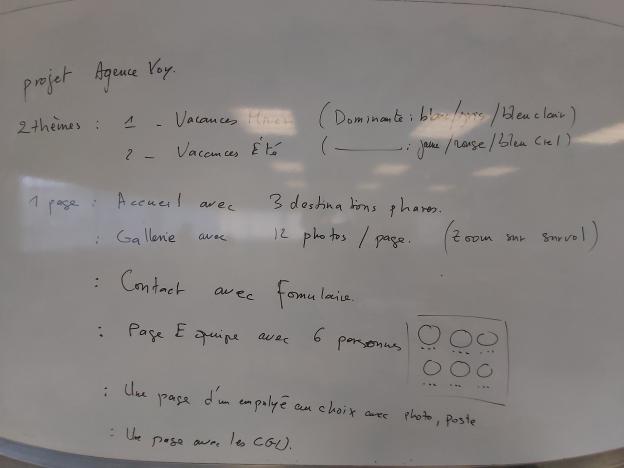 projet Agence Voy.
2 thèmes : 1 - Vacances Hiver (Dominante : blanc/gris/bleu clair)
2 - Vacances Été ( ——— : jaune/rouge/bleu ciel)
1 page : Accueil avec 3 destinations phares.
: Gallerie avec 12 photos / page. (Zoom sur survol)
: Contact avec Fomulaire.
: Page Equipe avec 6 personnes
: Une page d'un employé au choix avec photo, poste
: Une page avec les CGU.